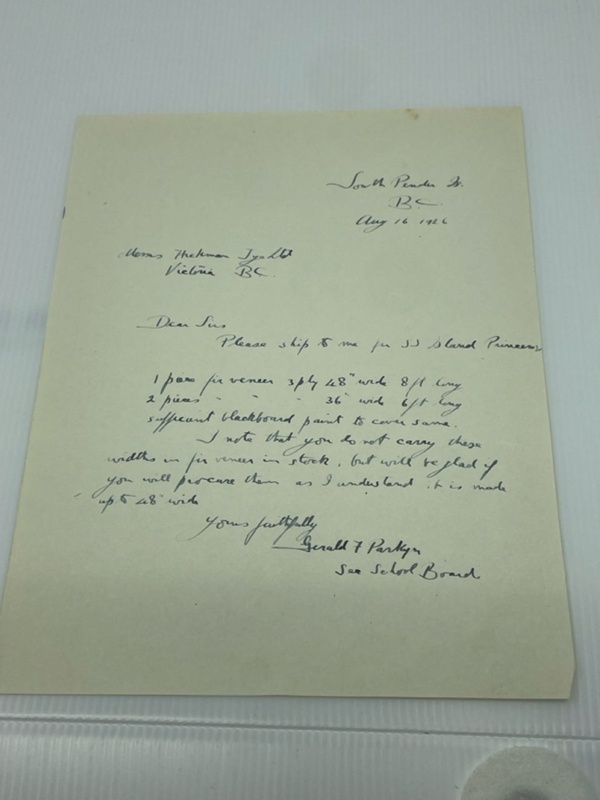 South Pender Is.
B.C.
Aug 16 1926
Messrs Hickman Tye Ltd
Victoria BC.
Dear Sirs
Please ship to me per SS Island Princess
1 piece fir veneer 3 ply 48" wide 8 ft long
2 pieces " " " 36" wide 6 ft long
sufficient blackboard paint to cover same.
I note that you do not carry these
widths in fir veneer in stock, but will be glad if
you will procure them as I understand it is made
up to 48" wide
Yours faithfully
Gerald F Parkyn
Sec School Board